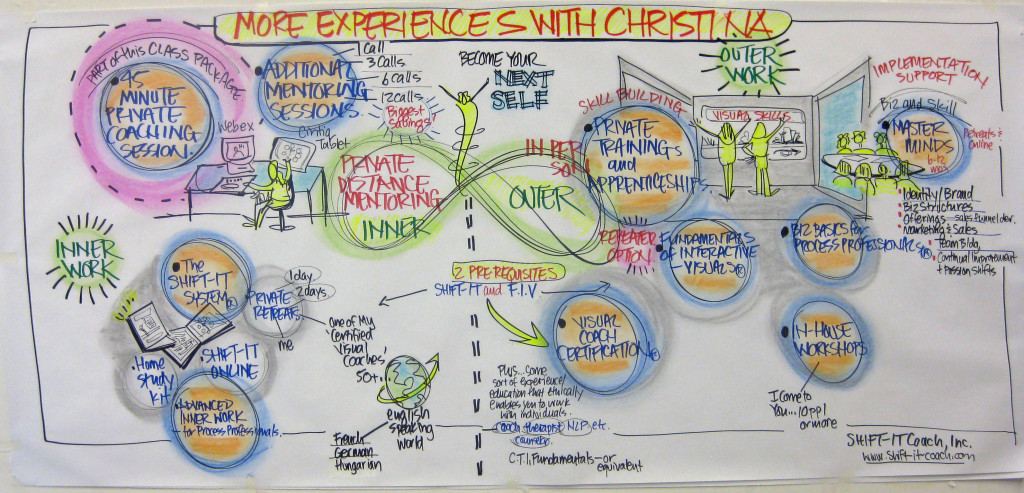 MORE EXPERIENCES WITH CHRISTINA
PART of this CLASS PACKAGE
95
MINUTE
PRIVATE
COACHING
SESSION.
Webex
ADDITIONAL
MENTORING
SESSIONS.
1 Call
3 Calls
6 calls
12 calls
Biggest
Savings!
Tablet
BECOME YOUR
NEXT
SELF
PRIVATE
DISTANCE
MENTORING
INNER
OUTER
IN PER
SON
SKILL BUILDING
PRIVATE
TRAININGS
and
APPRENTICESHIPS
OUTER
WORK
VISUAL SKILLS
IMPLEMENTATION
SUPPORT
Biz and Skill
MASTER
MINDS
6-12
Retreats &
Online
Identity/Brand
Biz Structures
Offerings - sales funnel dev.
Marketing & Sales
Team Bldg
Continual Improvement
+ Passion Shifts
INNER
WORK
The
SHIFT-IT
SYSTEM®
PRIVATE
RETREATS
1 day
2 days
me
one of My
'Certified
Visual
Coaches'
50+...
Home
Study
Kit
SHIFT-IT
ONLINE
ADVANCED
INNER WORK
for Process Professionals.
english
speaking
world
French
German
Hungarian
2 PREREQUISITES
SHIFT-IT and F.I.V
REPEATER
OPTION
FUNDAMENTALS
OF INTERACTIVE
VISUALS®
BIZ BASICS for
PROCESS PROFESSIONALS®
VISUAL
COACH
CERTIFICATION®
Plus... some
sort of experience/
education that ethically
enables you to work
with individuals.
Coach therapist NLP etc.
counselor
C.T.I. Fundamentals — or
equivalent
IN-HOUSE
WORKSHOPS
I come to
You... 10 ppl
or more
SHIFT-IT Coach, Inc.
www.shift-it-coach.com